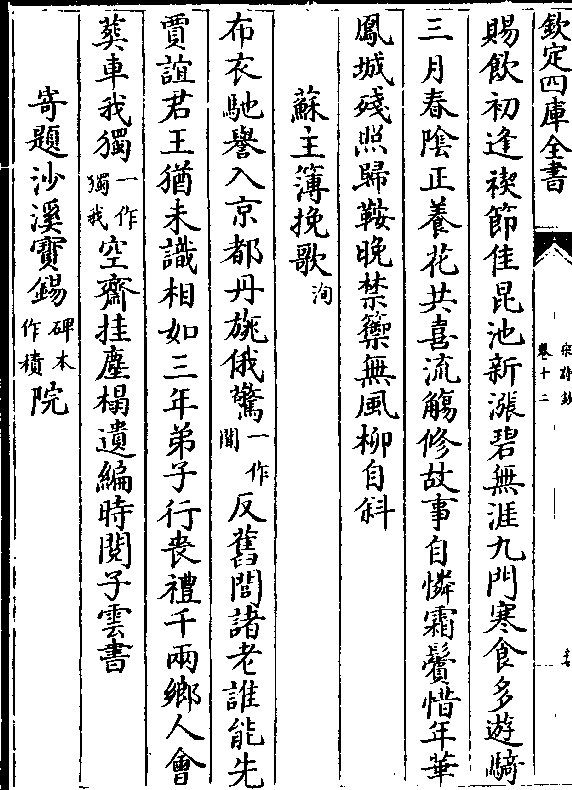 欽定四庫全書
宋詩鈔
卷十二
賜飲初逢禊節佳昆池新漲碧無涯九門寒食多遊騎
三月春陰正養花共喜流觴修故事自憐霜鬢惜年華
鳳城殘照歸鞍晚禁籞無風柳自斜
蘇主簿挽歌洵
布衣馳譽入京都丹旐俄驚一作聞反舊閭諸老誰能先
賈誼君王猶未識相如三年弟子行喪禮千兩鄉人會
葬車我獨一作獨我空齋挂塵榻遺編時閱子雲書
寄題沙溪寶錫碑本作積院